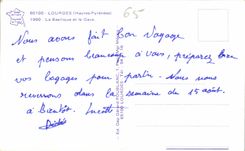 65
65100 - LOURDES (Hautes-Pyrénées)
1990 - La Basilique et le Gave.
Nous avons fait bon voyage
et pensons beaucoup à vous, préparez bien
vos bagages pour partir. Nous nous
reverrons dans la semaine du 15 août.
à bientôt. Lucette